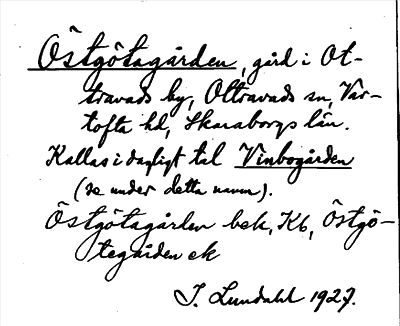 Östgötagården, gård i Ot-
travads by, Ottravads sn, Var-
tofta hd, Skaraborgs län.
Kallas i dagligt tal Vinbogården
(se under detta namn).
Östgötagården bek, Kb, Östgö-
tegården ek
J. Lundahl 1927.